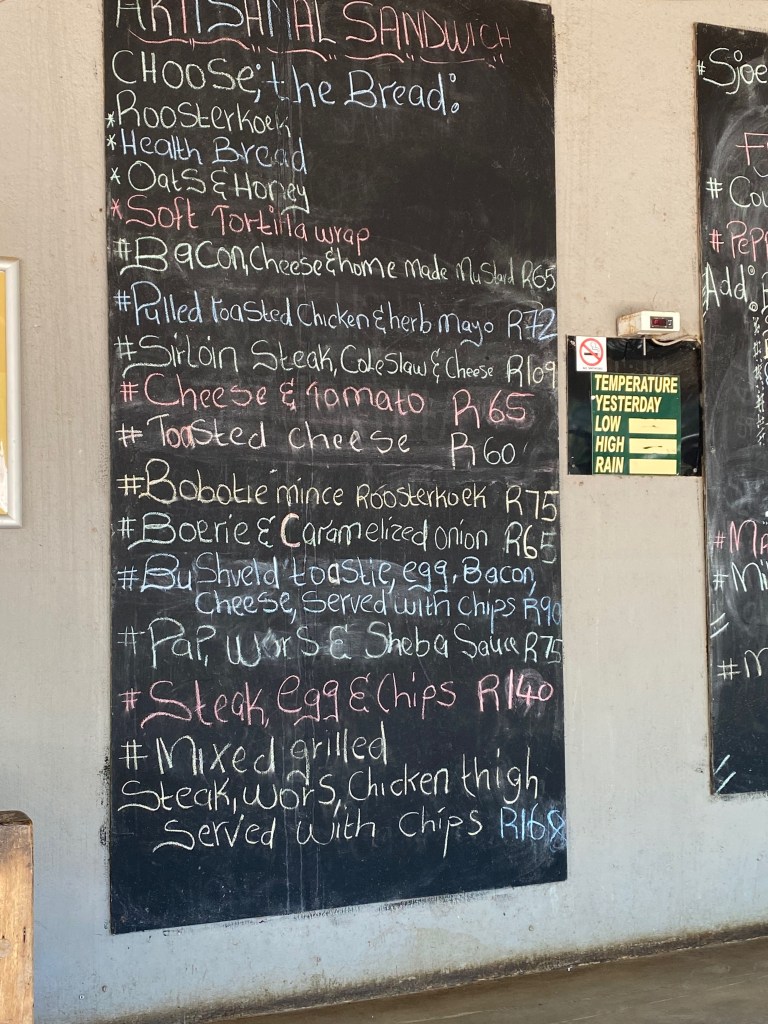 ARTISANAL SANDWICH
CHOOSE; the Bread:
*Roosterkoek
*Health Bread
*Oats & Honey
*Soft Tortilla wrap
#Bacon, Cheese & home made Mustard R65
#Pulled toasted Chicken & herb mayo R72
#Sirloin Steak, Coleslaw & Cheese R109
#Cheese & Tomato R65
#Toasted cheese R60
#Bobotie mince Roosterkoek R75
#Boerie & Caramelized onion R65
#Bushveld toastie, egg, Bacon,
Cheese, Served with chips R90
#Pap, wors & Sheba Sauce R75
#Steak, egg & Chips R140
#Mixed grilled
Steak, wors, Chicken thigh
Served with chips R168
TEMPERATURE
YESTERDAY
LOW
HIGH
RAIN
#Sjoe
#Cou
#Pepp
Add:
#Ma
#Mil
#M